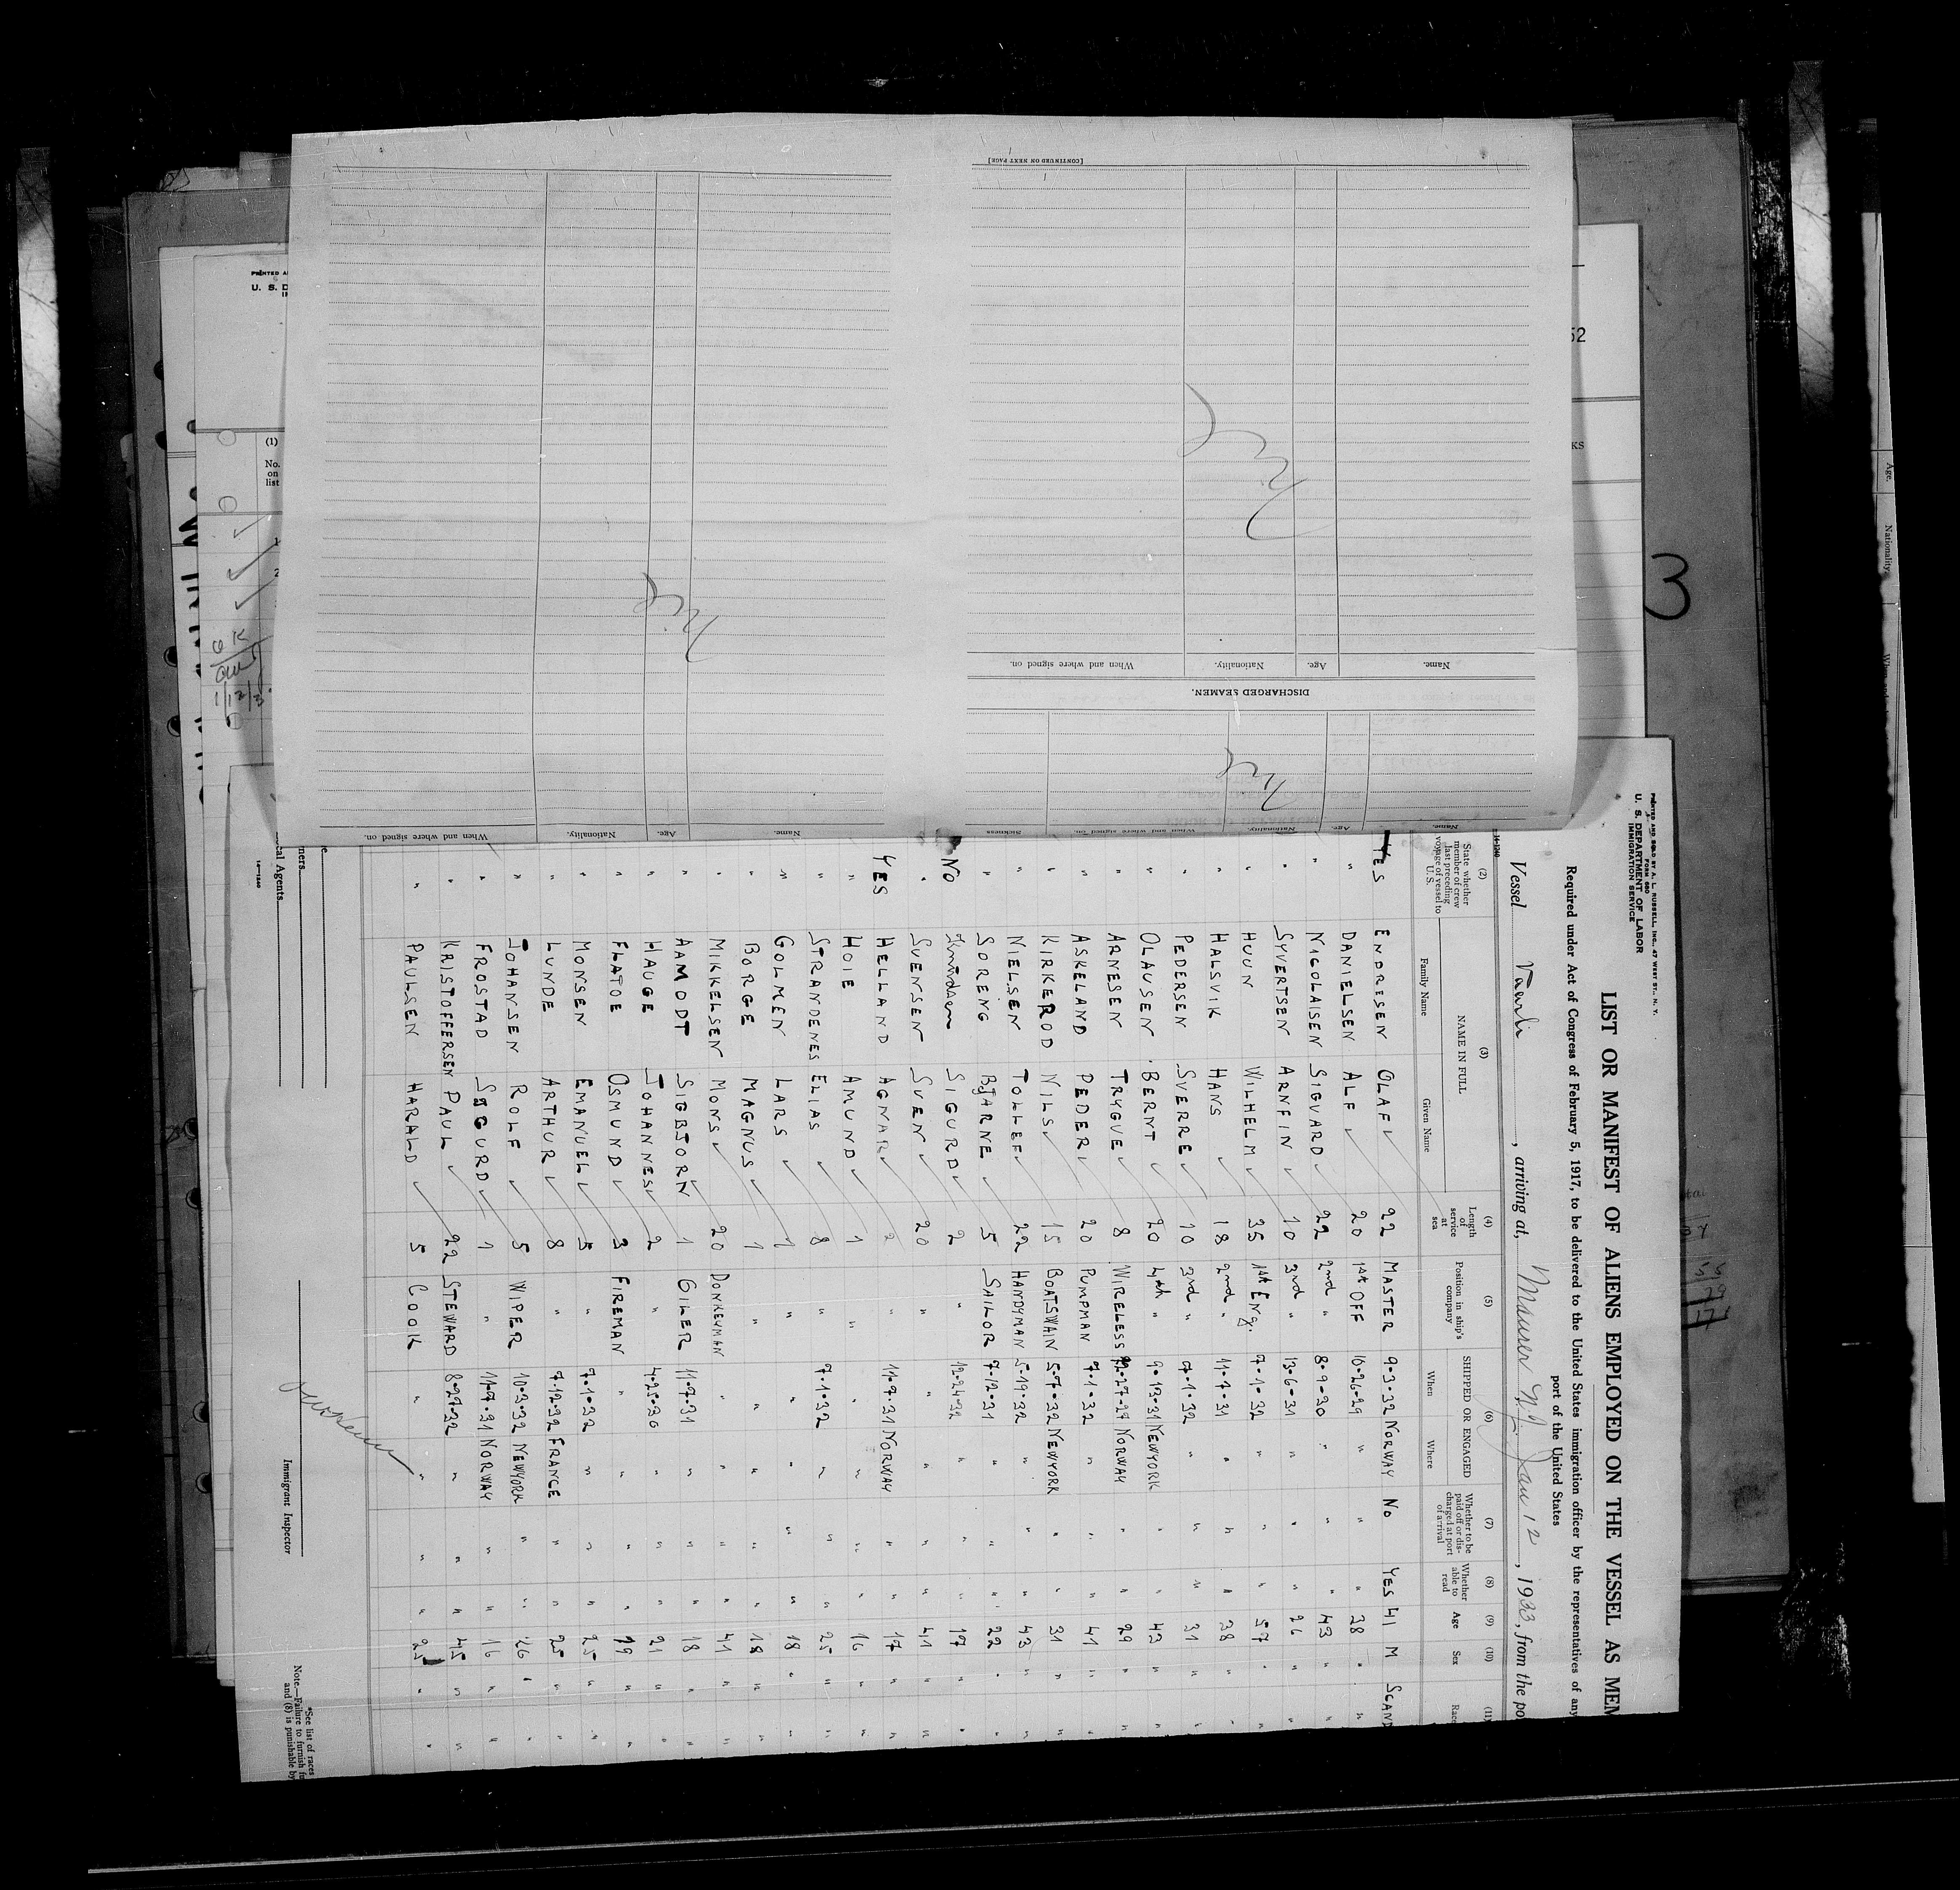 PRINTED AND SOLD BY A. L. RUSSELL INC., 47 WEST ST., N. Y.
FORM 680
U. S. DEPARTMENT OF LABOR
IMMIGRATION SERVICE
LIST OR MANIFEST OF ALIENS EMPLOYED ON THE VESSEL AS MEM
Required under Act of Congress of February 5, 1917, to be delivered to the United States immigration officer by the representatives of any
port of the United States
Vessel Vaarli, arriving at, Maurer N.J. Jan 12, 1933, from the po
(2) (3) (4) (5) (6) (7) (8) (9) (10) (11)
State whether member of crew last preceding voyage of vessel to U. S. NAME IN FULL Family Name Given Name Length of service at sea Position in ship's company SHIPPED OR ENGAGED When Where Whether to be paid off or discharged at port of arrival Whether able to read Age Sex Race
YES ENDRESEN OLAF 22 MASTER 9-3-32 NORWAY NO YES 41 M SCAND
" DANIELSEN ALF 20 1st OFF 10-26-29 " " " 38 " "
" NICOLAISEN SIGVARD 22 2nd " 8-9-30 " " " 43 " "
" SYVERTSEN ARNFIN 10 3rd " 13-6-31 " " " 26 " "
" HUUN WILHELM 35 1st Eng. 7-1-32 " " " 57 " "
" HALSVIK HANS 18 2nd " 11-7-31 " " " 38 " "
" PEDERSEN SVERRE 10 3rd " 7-1-32 " " " 31 " "
" OLAUSEN BERNT 20 4th " 9-13-31 NEWYORK " " 43 " "
" ARNESEN TRYGVE 8 WIRELESS 12-27-27 NORWAY " " 29 " "
" ASKELAND PEDER 20 PUMPMAN 7-1-32 " " " 41 " "
" KIRKEROD NILS 15 BOATSWAIN 5-7-32 NEWYORK " " 31 " "
" NIELSEN TOLLEF 22 HANDYMAN 5-19-32 " " " 43 " "
" SORENG BJARNE 5 SAILOR 7-12-31 " " " 22 " "
NO Knudsen SIGURD 2 " 12-24-32 " " " 17 " "
" SVENSEN SVEN 20 " " " " " 41 " "
YES HELLAND AGNAR 2 " 11-7-31 NORWAY " " 17 " "
" HOIE AMUND 1 " " " " " 16 " "
" STRANDENES ELIAS 8 " 7-1-32 " " " 25 " "
" GOLMEN LARS 1 " " " " " 18 " "
" BORGE MAGNUS 1 " " " " " 18 " "
" MIKKELSEN MONS 20 DONKEYMAN " " " " 41 " "
" AAMODT SIGBJORN 1 OILER 11-7-31 " " " 18 " "
" HAUGE JOHANNES 2 " 4-25-30 " " " 21 " "
" FLATOE OSMUND 3 FIREMAN " " " " 19 " "
" MONSEN EMANUEL 5 " 7-1-32 " " " 25 " "
" LUNDE ARTHUR 8 " 7-12-32 FRANCE " " 25 " "
" JOHANSEN ROLF 5 WIPER 10-3-32 NEWYORK " " 26 " "
" FROSTAD SIGURD 1 " 11-7-31 NORWAY " " 16 " "
" KRISTOFFERSEN PAUL 22 STEWARD 8-27-32 " " " 45 " "
" PAULSEN HARALD 5 COOK " " " " 25 " "
Immigrant Inspector
*See list of races
Note.—Failure to furnish
and (8) is punishable by
cal Agents
14-1240
[CONTINUED ON NEXT PAGE]
Name. Age. Nationality. When and where signed on.
DISCHARGED SEAMEN.
Name. Age. Nationality. When and where signed on. Sickness
Name. Age. Nationality. When and where signed on.
PRINTED A
U. S. D
(1)
No. on list
1
2
OK
1/12/3
52
KS
3
Age.
Nationality.